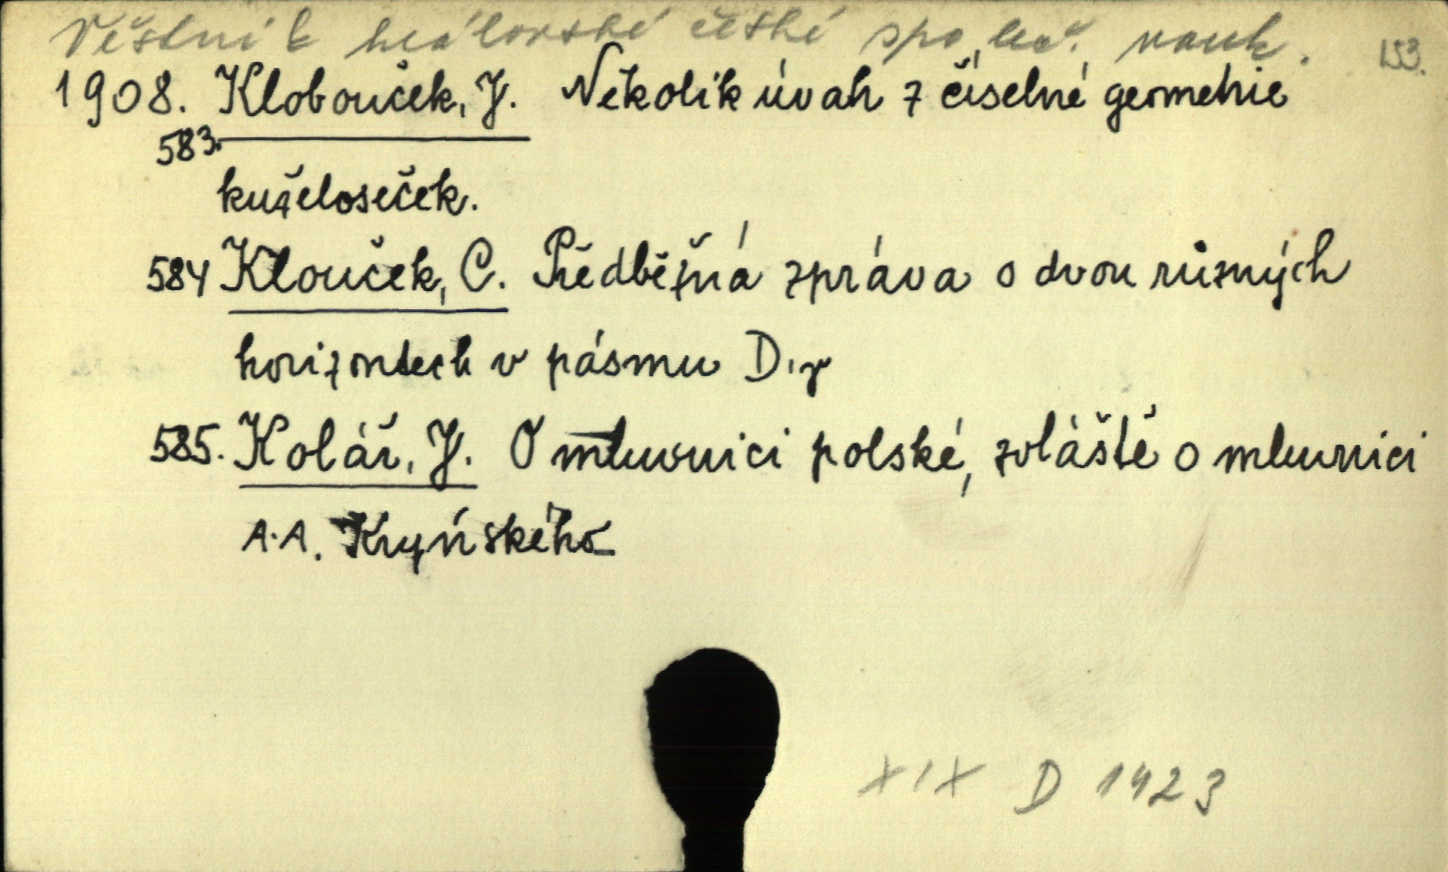 Věstník královské české společ. nauk. 153.
1908. Klobouček, J. Několik úvah z číselné geometrie
583.
kuželoseček.
584 Klouček, C. Předběžná zpráva o dvou různých
horizontech v pásmu D.γ
585. Kolář, J. O mluvnici polské, zvláště o mluvnici
A.A. Kryńského
XIX D 1423